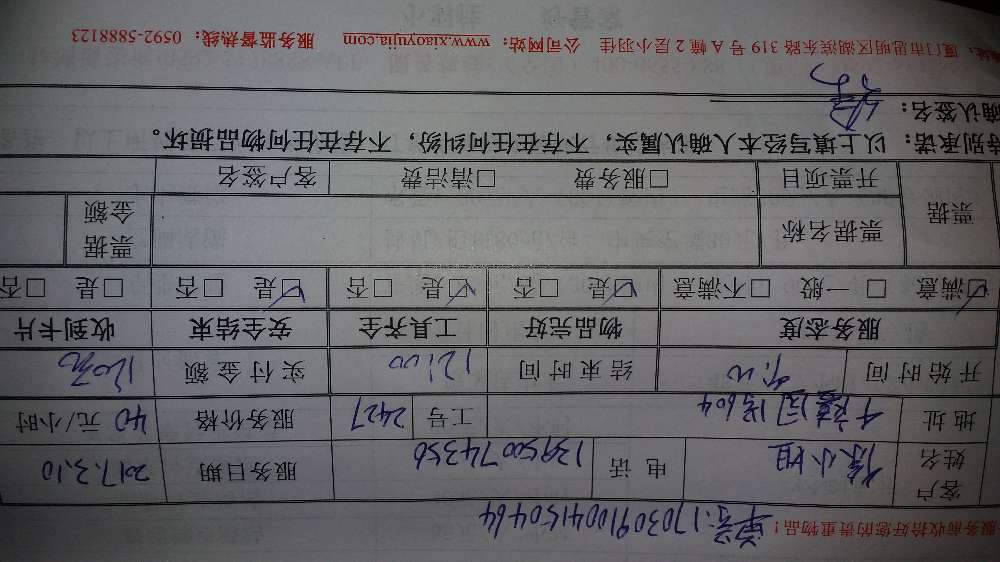 服务前收拾好您的贵重物品！
单号:17030910041504 64
客户姓名 徐小姐 电话 13950074356 服务日期 2017.3.10
地址 604 工号 2427 服务价格 40 元/小时
开始时间 9:00 结束时间 12:00 实付金额 120元
服务态度 物品完好 工具齐全 安全结束 收到卡片
☑满意 □一般 □不满意 ☑是 □否 ☑是 □否 ☑是 □否 □是 □否
票据 票据名称 票据金额
开票项目 □服务费 □清洁费 客户签名
特别承诺：以上填写经本人确认属实，不存在任何纠纷，不存在任何物品损坏。
确认签名：
地址：厦门市思明区湖滨东路 319 号 A 幢 2 层小羽佳 公司网站：www.xiaoyujia.com 服务监督热线：0592-5888123